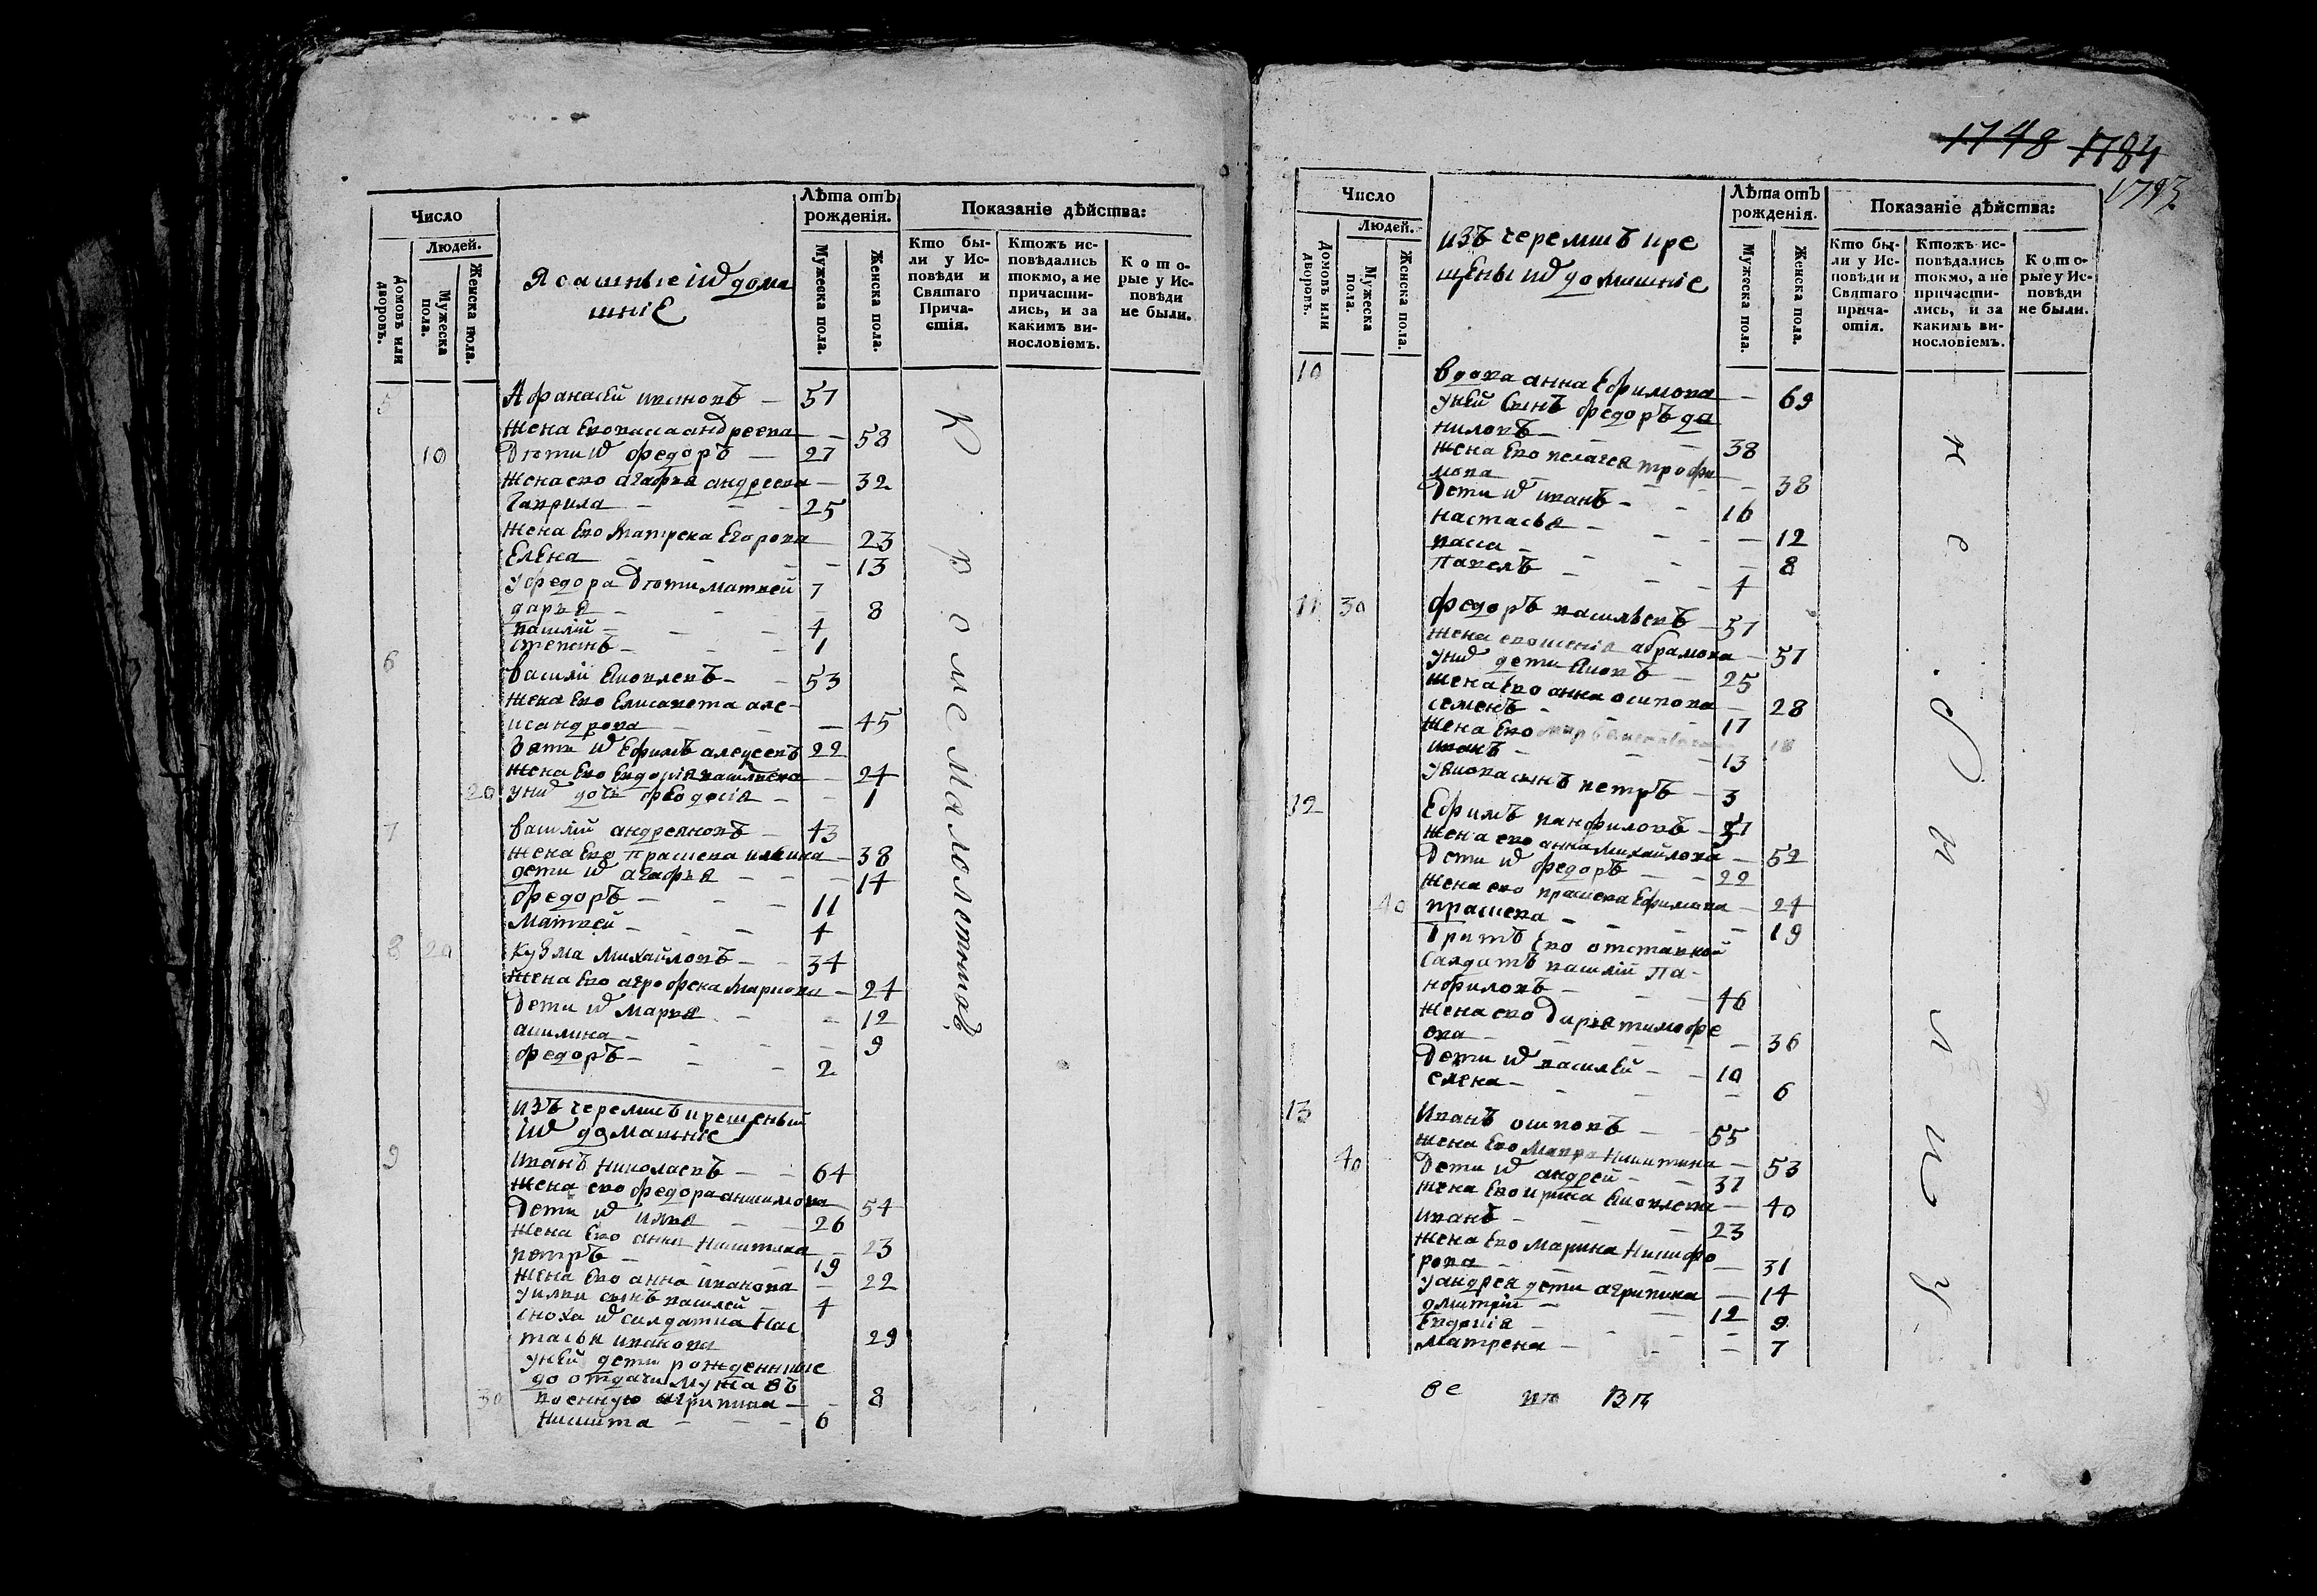 Число
Людей.
Домовъ или дворовъ.
Мужеска пола.
Женска пола.
Ясашные и ихъ дома
шніе
Лѣта отъ рожденія.
Мужеска пола.
Женска пола.
Показаніе дѣйства:
Кто бы-
ли у Ис-
повѣди и
Святаго
Прича-
стія.
Ктожъ ис-
повѣдались
токмо, а не
причасти-
лись, и за
какимъ ви-
нословіемъ.
Кото-
рые у Ис-
повѣди
не были.
5 Афанасей ивановъ — 57
жена ево васа андреева — 58
10 Дѣти ихъ федоръ — 27
жена ево агафья андреева — 32
гаврила — 25
жена ево матрена егорова 23
Елена — 13
у федора дѣти матвей 7
дарья — 8
василій — 4
степанъ — 1
6 Василій яковлевъ — 53
жена ево елисавета але-
ксандрова — 45
Зять ихъ ефимъ алексеевъ 22
жена ево евдокія васильева — 24
20 у нихъ дочь федосія — 1
7 Василій андреяновъ — 43
жена ево прасковья ильина — 38
дети ихъ агафья — 14
федоръ — 11
матвей — 4
8 20 кузма михайловъ — 34
жена ево агрофена маркова — 24
дети ихъ марья — 12
акилина — 9
федоръ — 2
изъ черемисъ крещеныи
ихъ домашніе
9 иванъ николаевъ — 64
жена ево федора анисимова — 54
Дети ихъ илья — 26
жена ево анна никитина — 23
петръ — 19
жена ево анна иванова — 22
у ильи сынъ василей — 4
сноха ихъ салдатка нас
тасья иванова 29
у ней дети рожденные
до отдачи мужа въ
30 военную агрипина — 8
никита — 6
Кромѣ малолѣтовъ
1748 1784
1793
Число
Людей.
Домовъ или дворовъ.
Мужеска пола.
Женска пола.
изъ черемисъ кре
щены ихъ домашніе
Лѣта отъ рожденія.
Мужеска пола.
Женска пола.
Показаніе дѣйства:
Кто бы-
ли у Ис-
повѣди и
Святаго
прича-
стія.
Ктожъ ис-
повѣдались
токмо, а не
причасти-
лись, и за
какимъ ви-
нословіемъ.
Кото-
рые у Ис-
повѣди
не были.
10 вдова анна ефимова — 69
у ней сынъ федоръ да
ниловъ — 38
жена ево пелагея трофи
мова — 38
Дети ихъ иванъ — 16
настасья — 12
васа — 8
павелъ — 4
11 30 федоръ васильевъ — 57
жена ево ксенія абрамова — 57
у нихъ дети яковъ — 25
жена ево анна осипова — 28
семенъ — 17
жена ево 18
иванъ — 13
у якова сынъ петръ — 3
12 Ефимъ панфиловъ — 51
жена ево анна михайлова — 52
дети ихъ федоръ — 22
жена ево прасковья ефимова — 24
40 прасковья — 19
братъ ево отставной
салдатъ василій па-
нфиловъ — 46
жена ево дарья тимофе
ева — 36
Дети ихъ василей — 10
елена — 6
13 иванъ осиповъ — 55
жена ево мавра никитина — 53
40 Дети ихъ андрей — 37
жена ево ирина яковлева — 40
иванъ — 23
жена ево марина никифо
рова — 31
у андрея дети агрипина — 14
дмитрій — 12
Евдокія — 9
матрена — 7